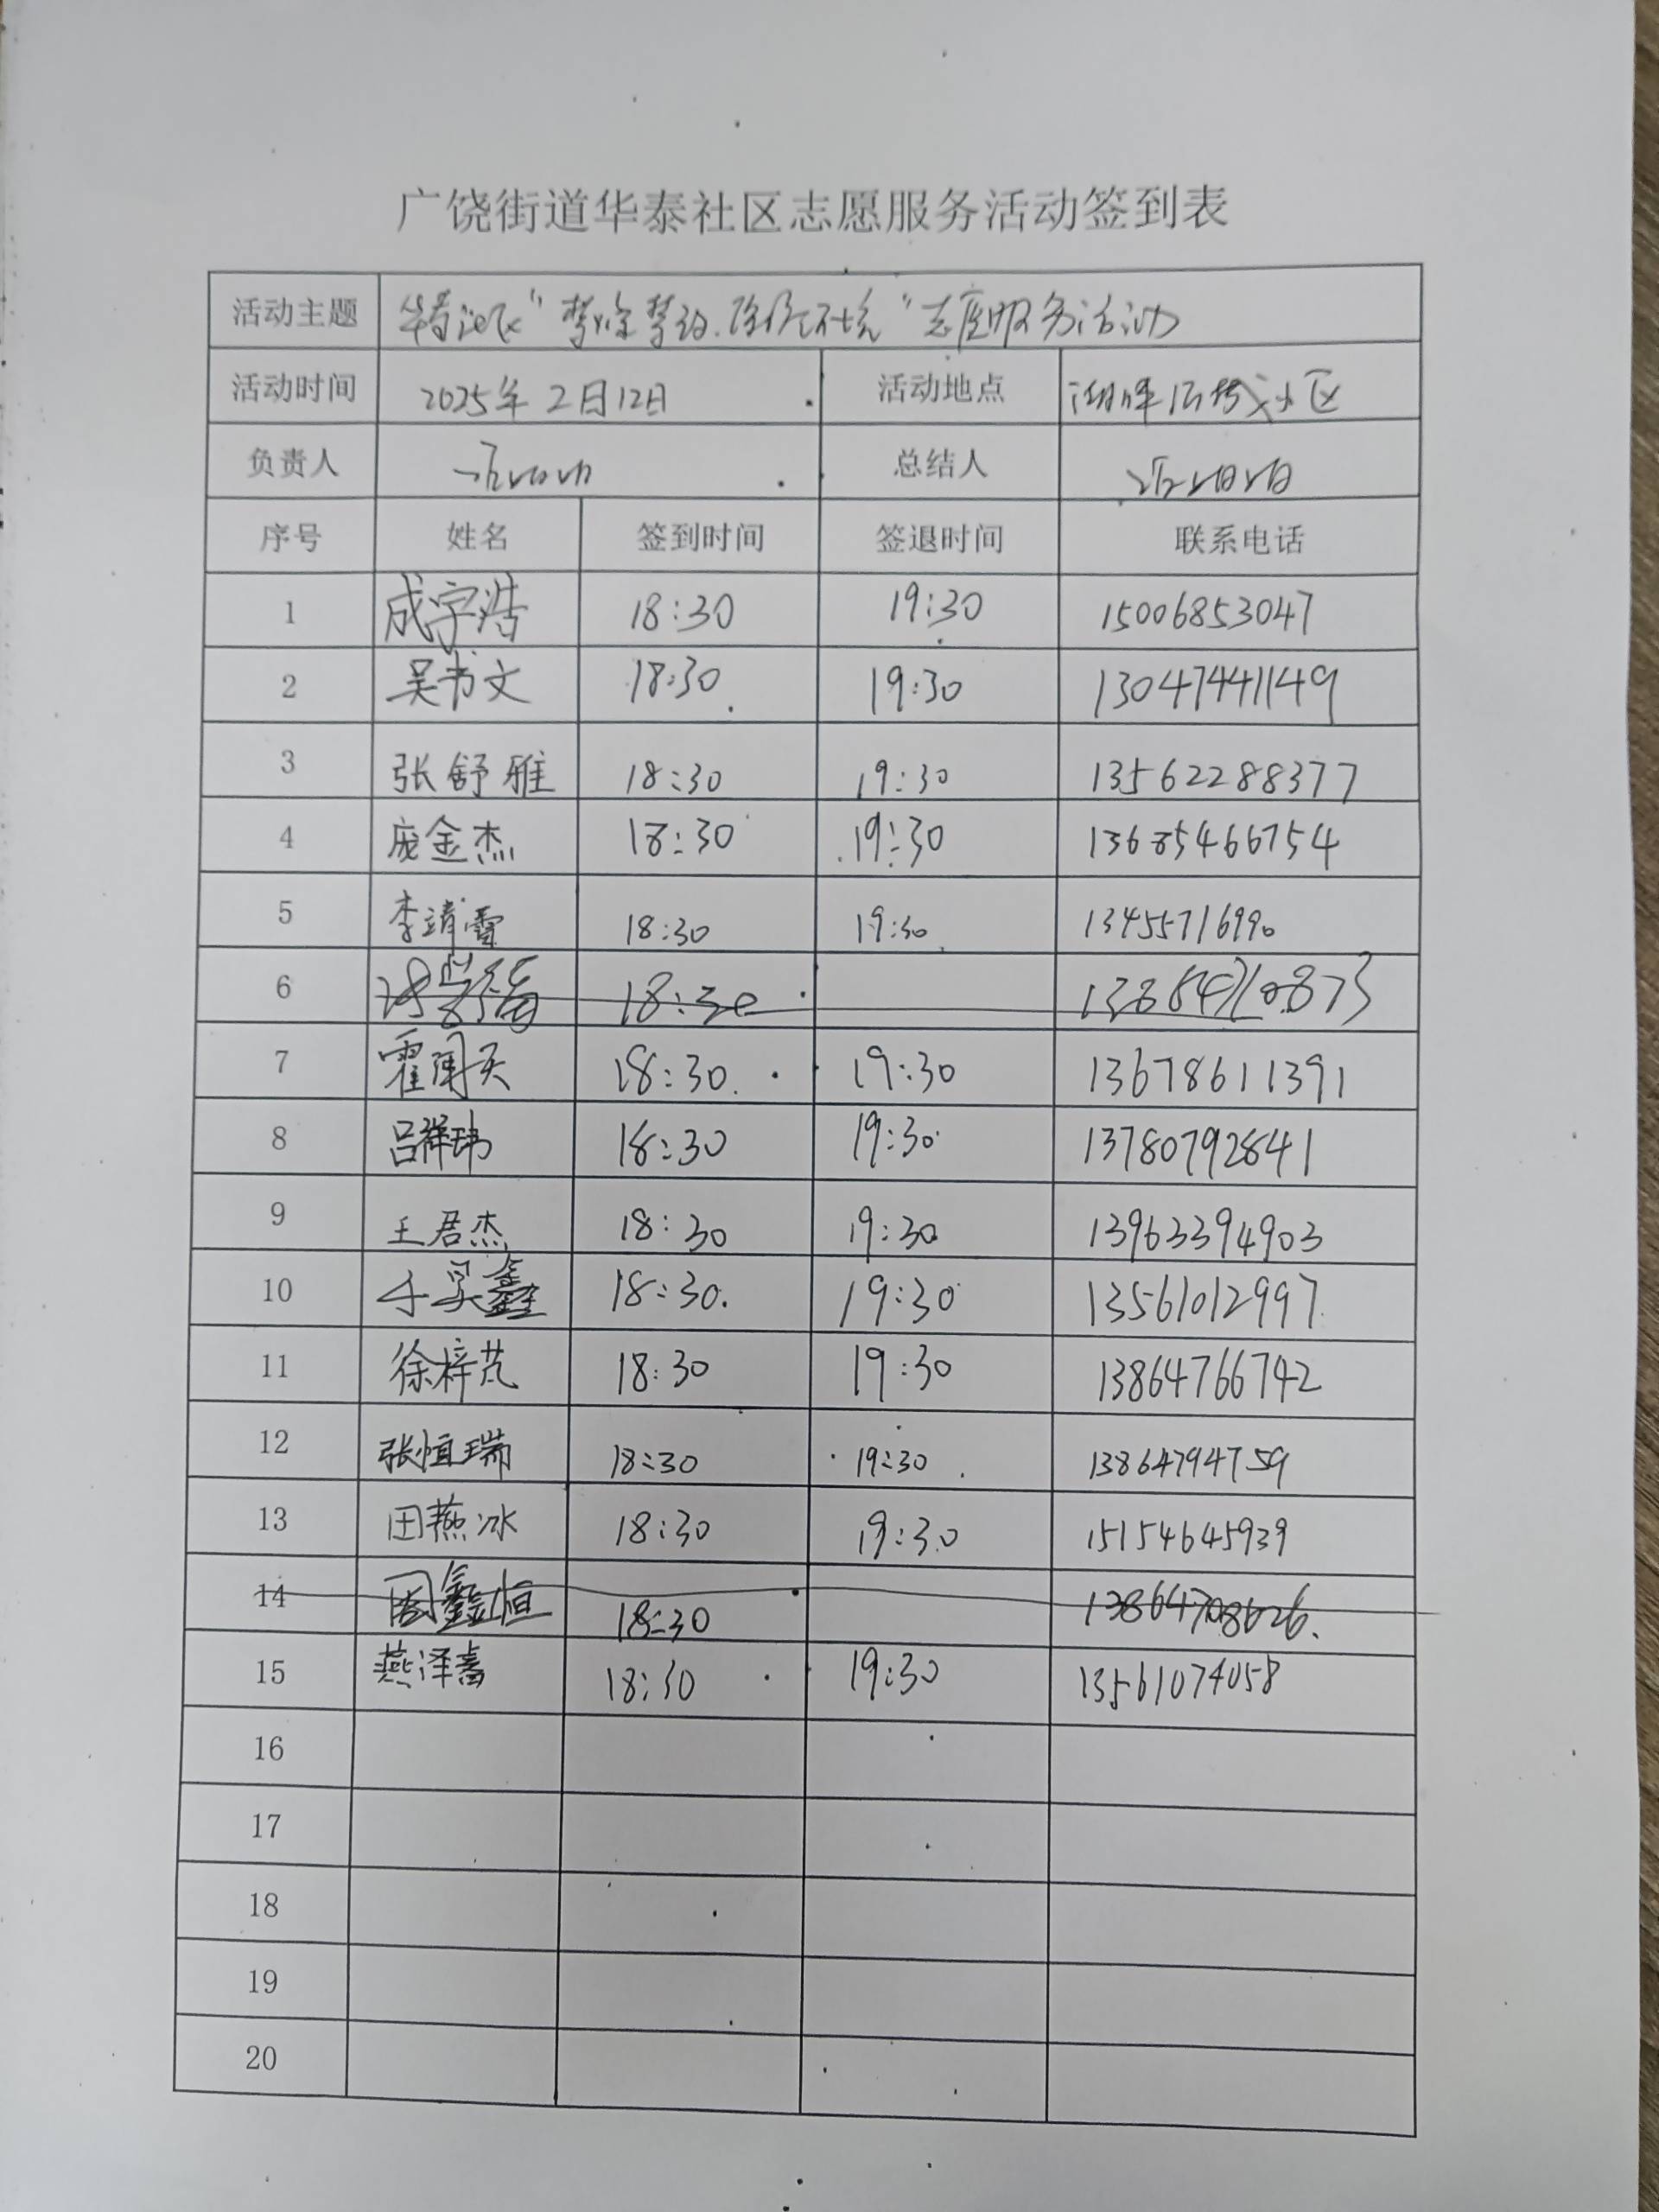 广饶街道华泰社区志愿服务活动签到表
活动主题 志愿服务活动
活动时间 2025年2月12日 活动地点 小区
负责人 总结人
序号 姓名 签到时间 签退时间 联系电话
1 成宇浩 18:30 19:30 15006853047
2 吴书文 18:30 19:30 13047441149
3 张舒雅 18:30 19:30 13562288377
4 庞金杰 18:30 19:30 13685466754
5 李靖雪 18:30 19:30 13455716990
6 18:30
7 霍闻天 18:30 19:30 13678611391
8 吕祥玮 18:30 19:30 13780792841
9 王君杰 18:30 19:30 13963394903
10 18:30 19:30 13561012997
11 徐梓芃 18:30 19:30 13864766742
12 张恒瑞 18:30 19:30 13864794759
13 田燕冰 18:30 19:30 15154645939
14 周鑫恒 18:30 13864708626
15 燕泽嘉 18:30 19:30 13561074058
16
17
18
19
20